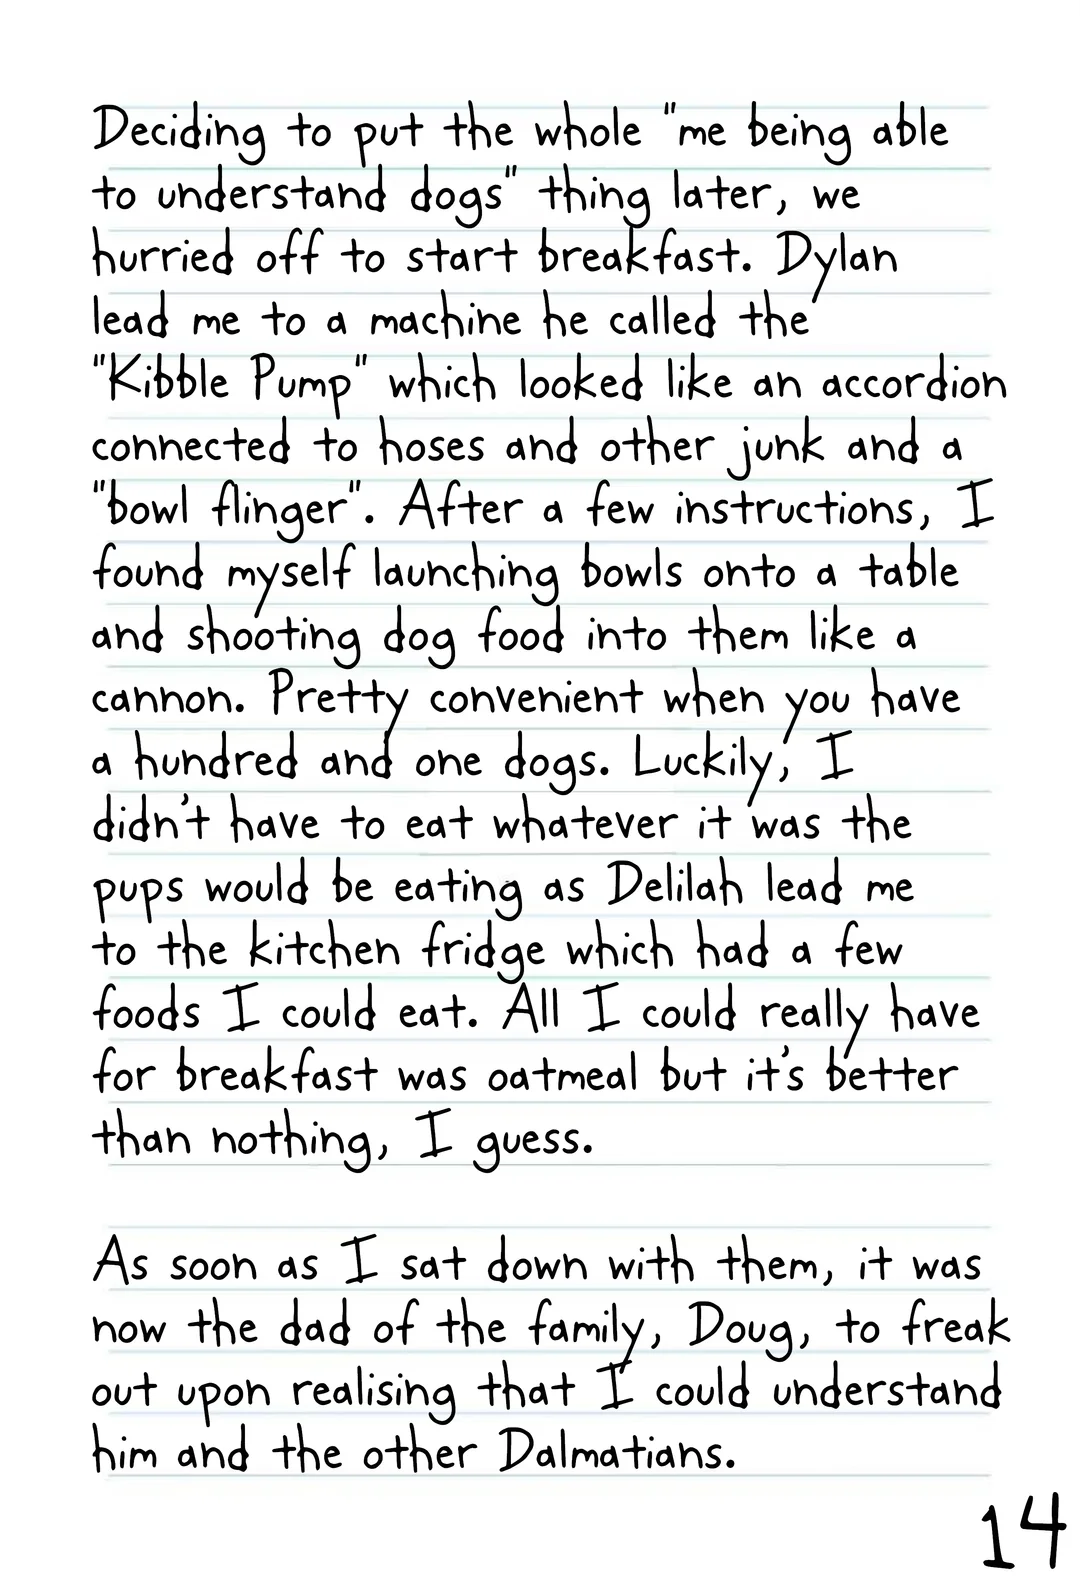 Deciding to put the whole "me being able
to understand dogs" thing later, we
hurried off to start breakfast. Dylan
lead me to a machine he called the
"Kibble Pump" which looked like an accordion
connected to hoses and other junk and a
"bowl flinger". After a few instructions, I
found myself launching bowls onto a table
and shooting dog food into them like a
cannon. Pretty convenient when you have
a hundred and one dogs. Luckily, I
didn't have to eat whatever it was the
pups would be eating as Delilah lead me
to the kitchen fridge which had a few
foods I could eat. All I could really have
for breakfast was oatmeal but it's better
than nothing, I guess.
As soon as I sat down with them, it was
now the dad of the family, Doug, to freak
out upon realising that I could understand
him and the other Dalmatians.
14